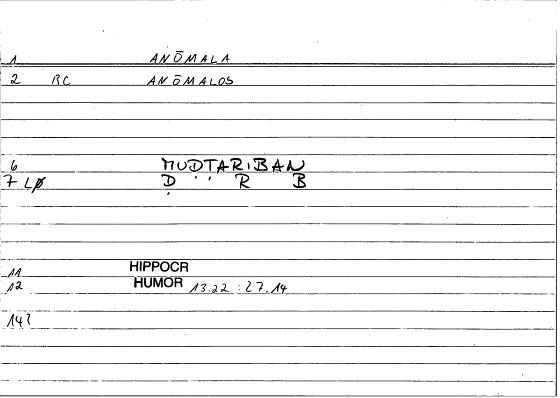 1 ANŌMALA
2 RC ANŌMALOS
6 MUDTARIBAN
7 LØ D R B
11 HIPPOCR
12 HUMOR 13.22 : 27.14
14?